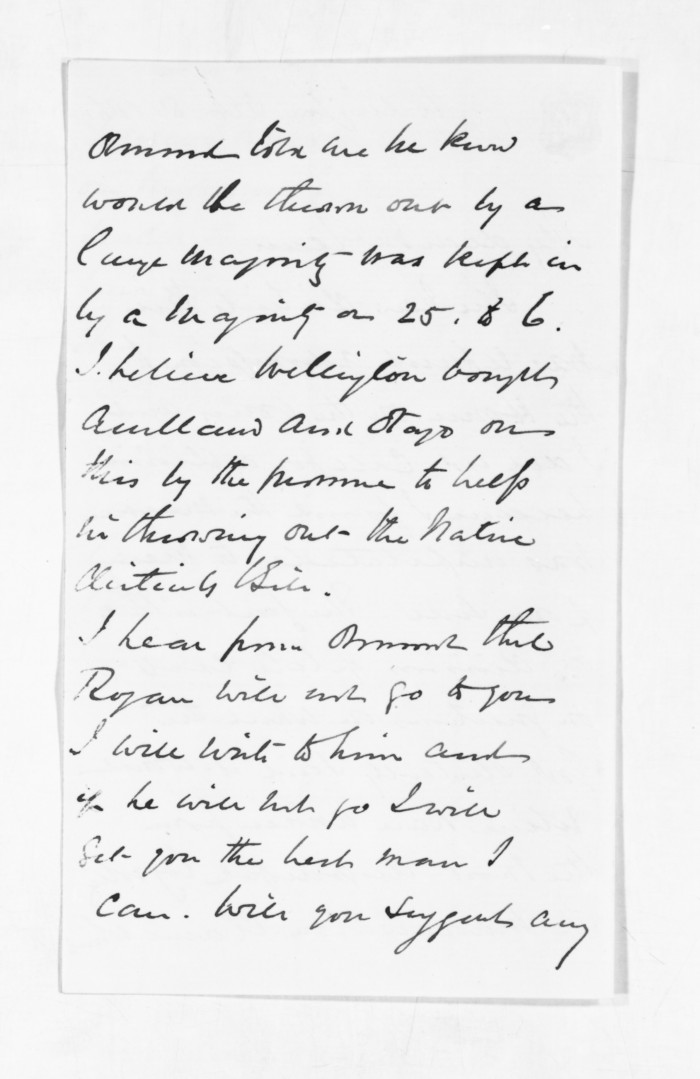 Ormond told me he knew
would be thrown out by a
large majority was kept in
by a majority on 25. to 6.
I believe Wellington bought
Auckland and Otago on
this by the promise to help
in throwing out the Native
Districts Bill.
I hear from Ormond that
Rogan will not go to you
I will write to him and
if he will not go I will
get you the best man I
can. Will you suggest any